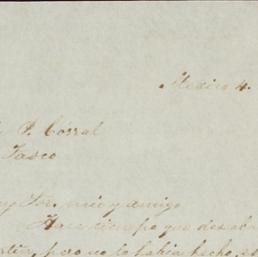 Mexico 4.
P. Corral
Tasco
Sor. mio y amigo
Hace tiempo que desea
pero no lo habia hecho